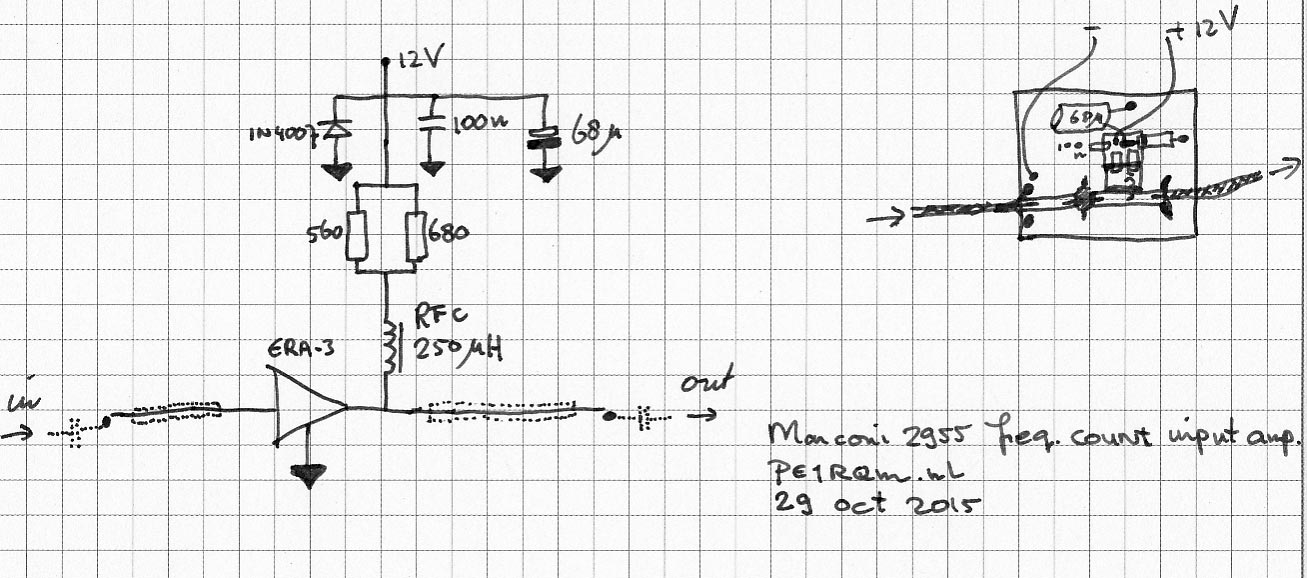 12V
1N4007
100n
68µ
560
680
RFC
250µH
ERA-3
in
out
- +12V
68µ
100
n
Marconi 2955 freq. count input amp.
PE1RQM.nL
29 oct 2015